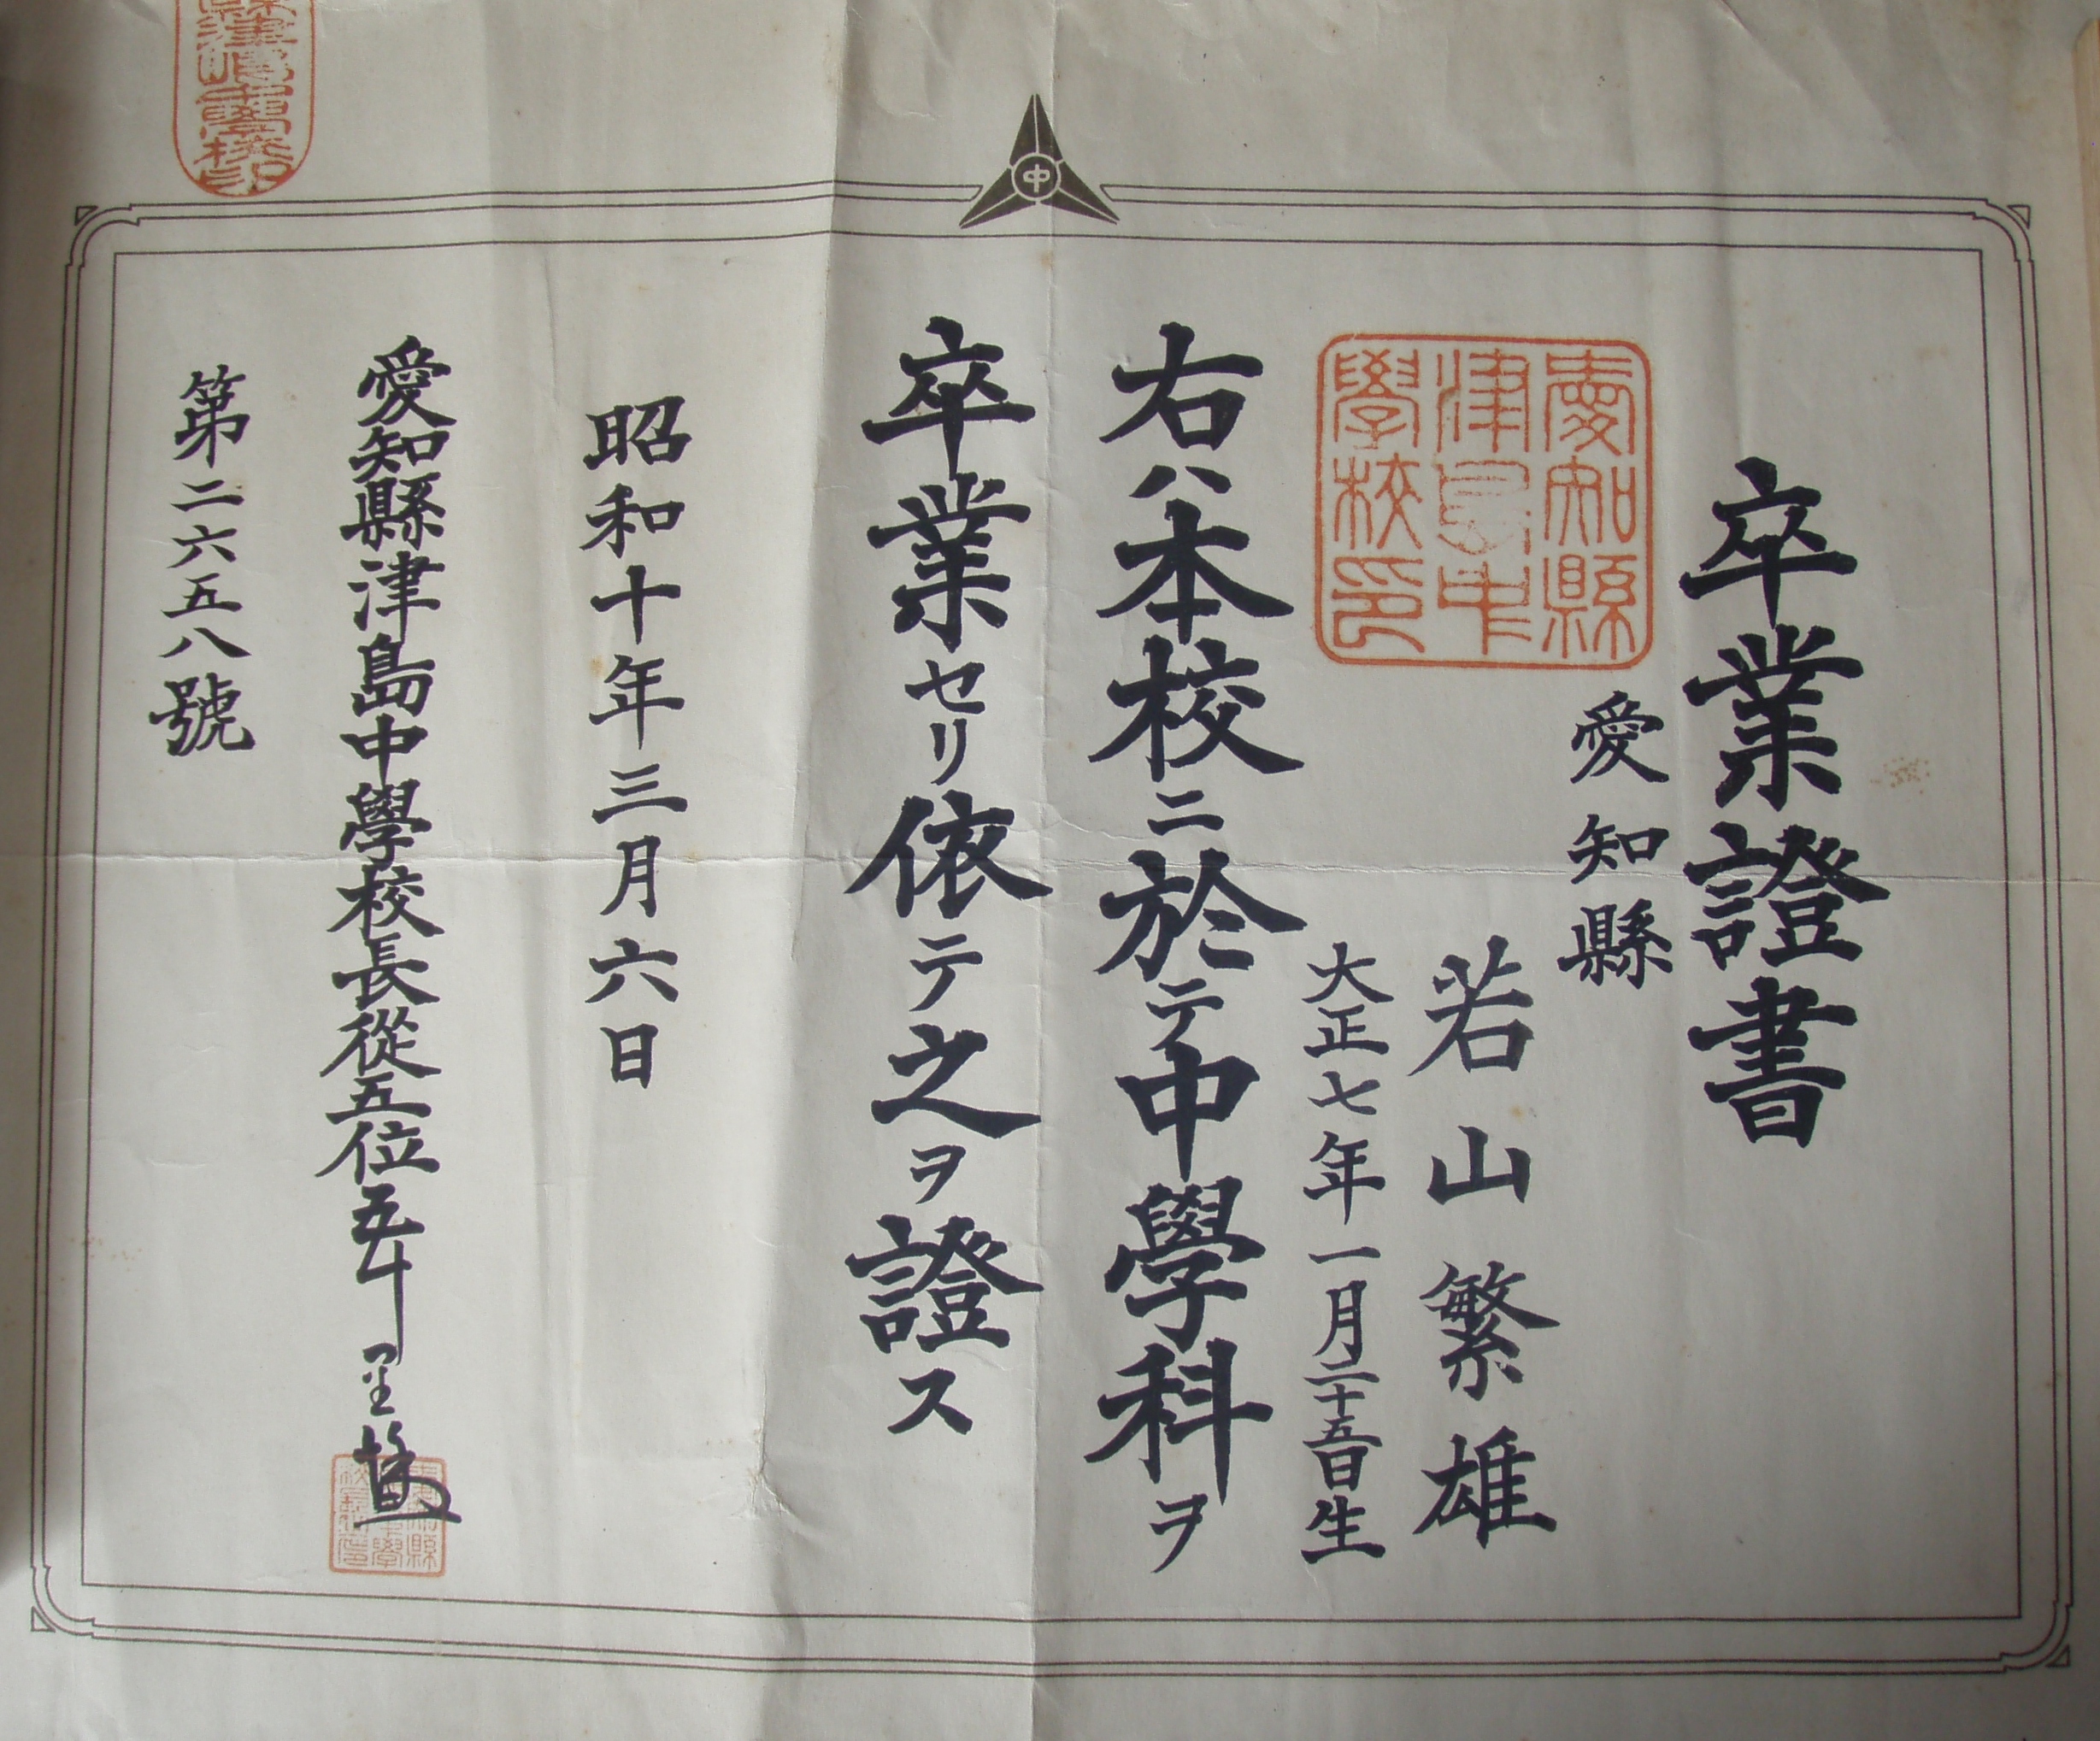 卒業證書
愛知縣
若山繁雄
大正七年一月二十五日生
愛知縣
津島中
學校印
右ハ本校ニ於テ中學科ヲ
卒業セリ依テ之ヲ證ス
昭和十年三月六日
愛知縣津島中學校長從五位
第二六五八號
中